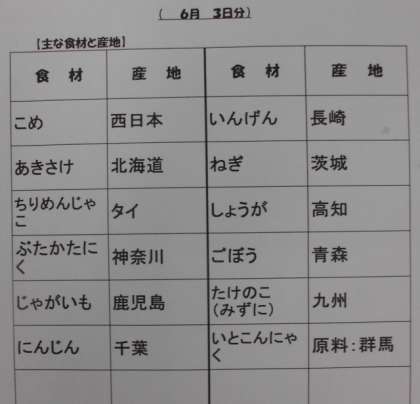 ( 6月 3日分)
【主な食材と産地】
食 材 産 地 食 材 産 地
こめ 西日本 いんげん 長崎
あきさけ 北海道 ねぎ 茨城
ちりめんじゃ
こ タイ しょうが 高知
ぶたかたに
く 神奈川 ごぼう 青森
じゃがいも 鹿児島 たけのこ
(みずに) 九州
にんじん 千葉 いとこんにゃ
く 原料:群馬